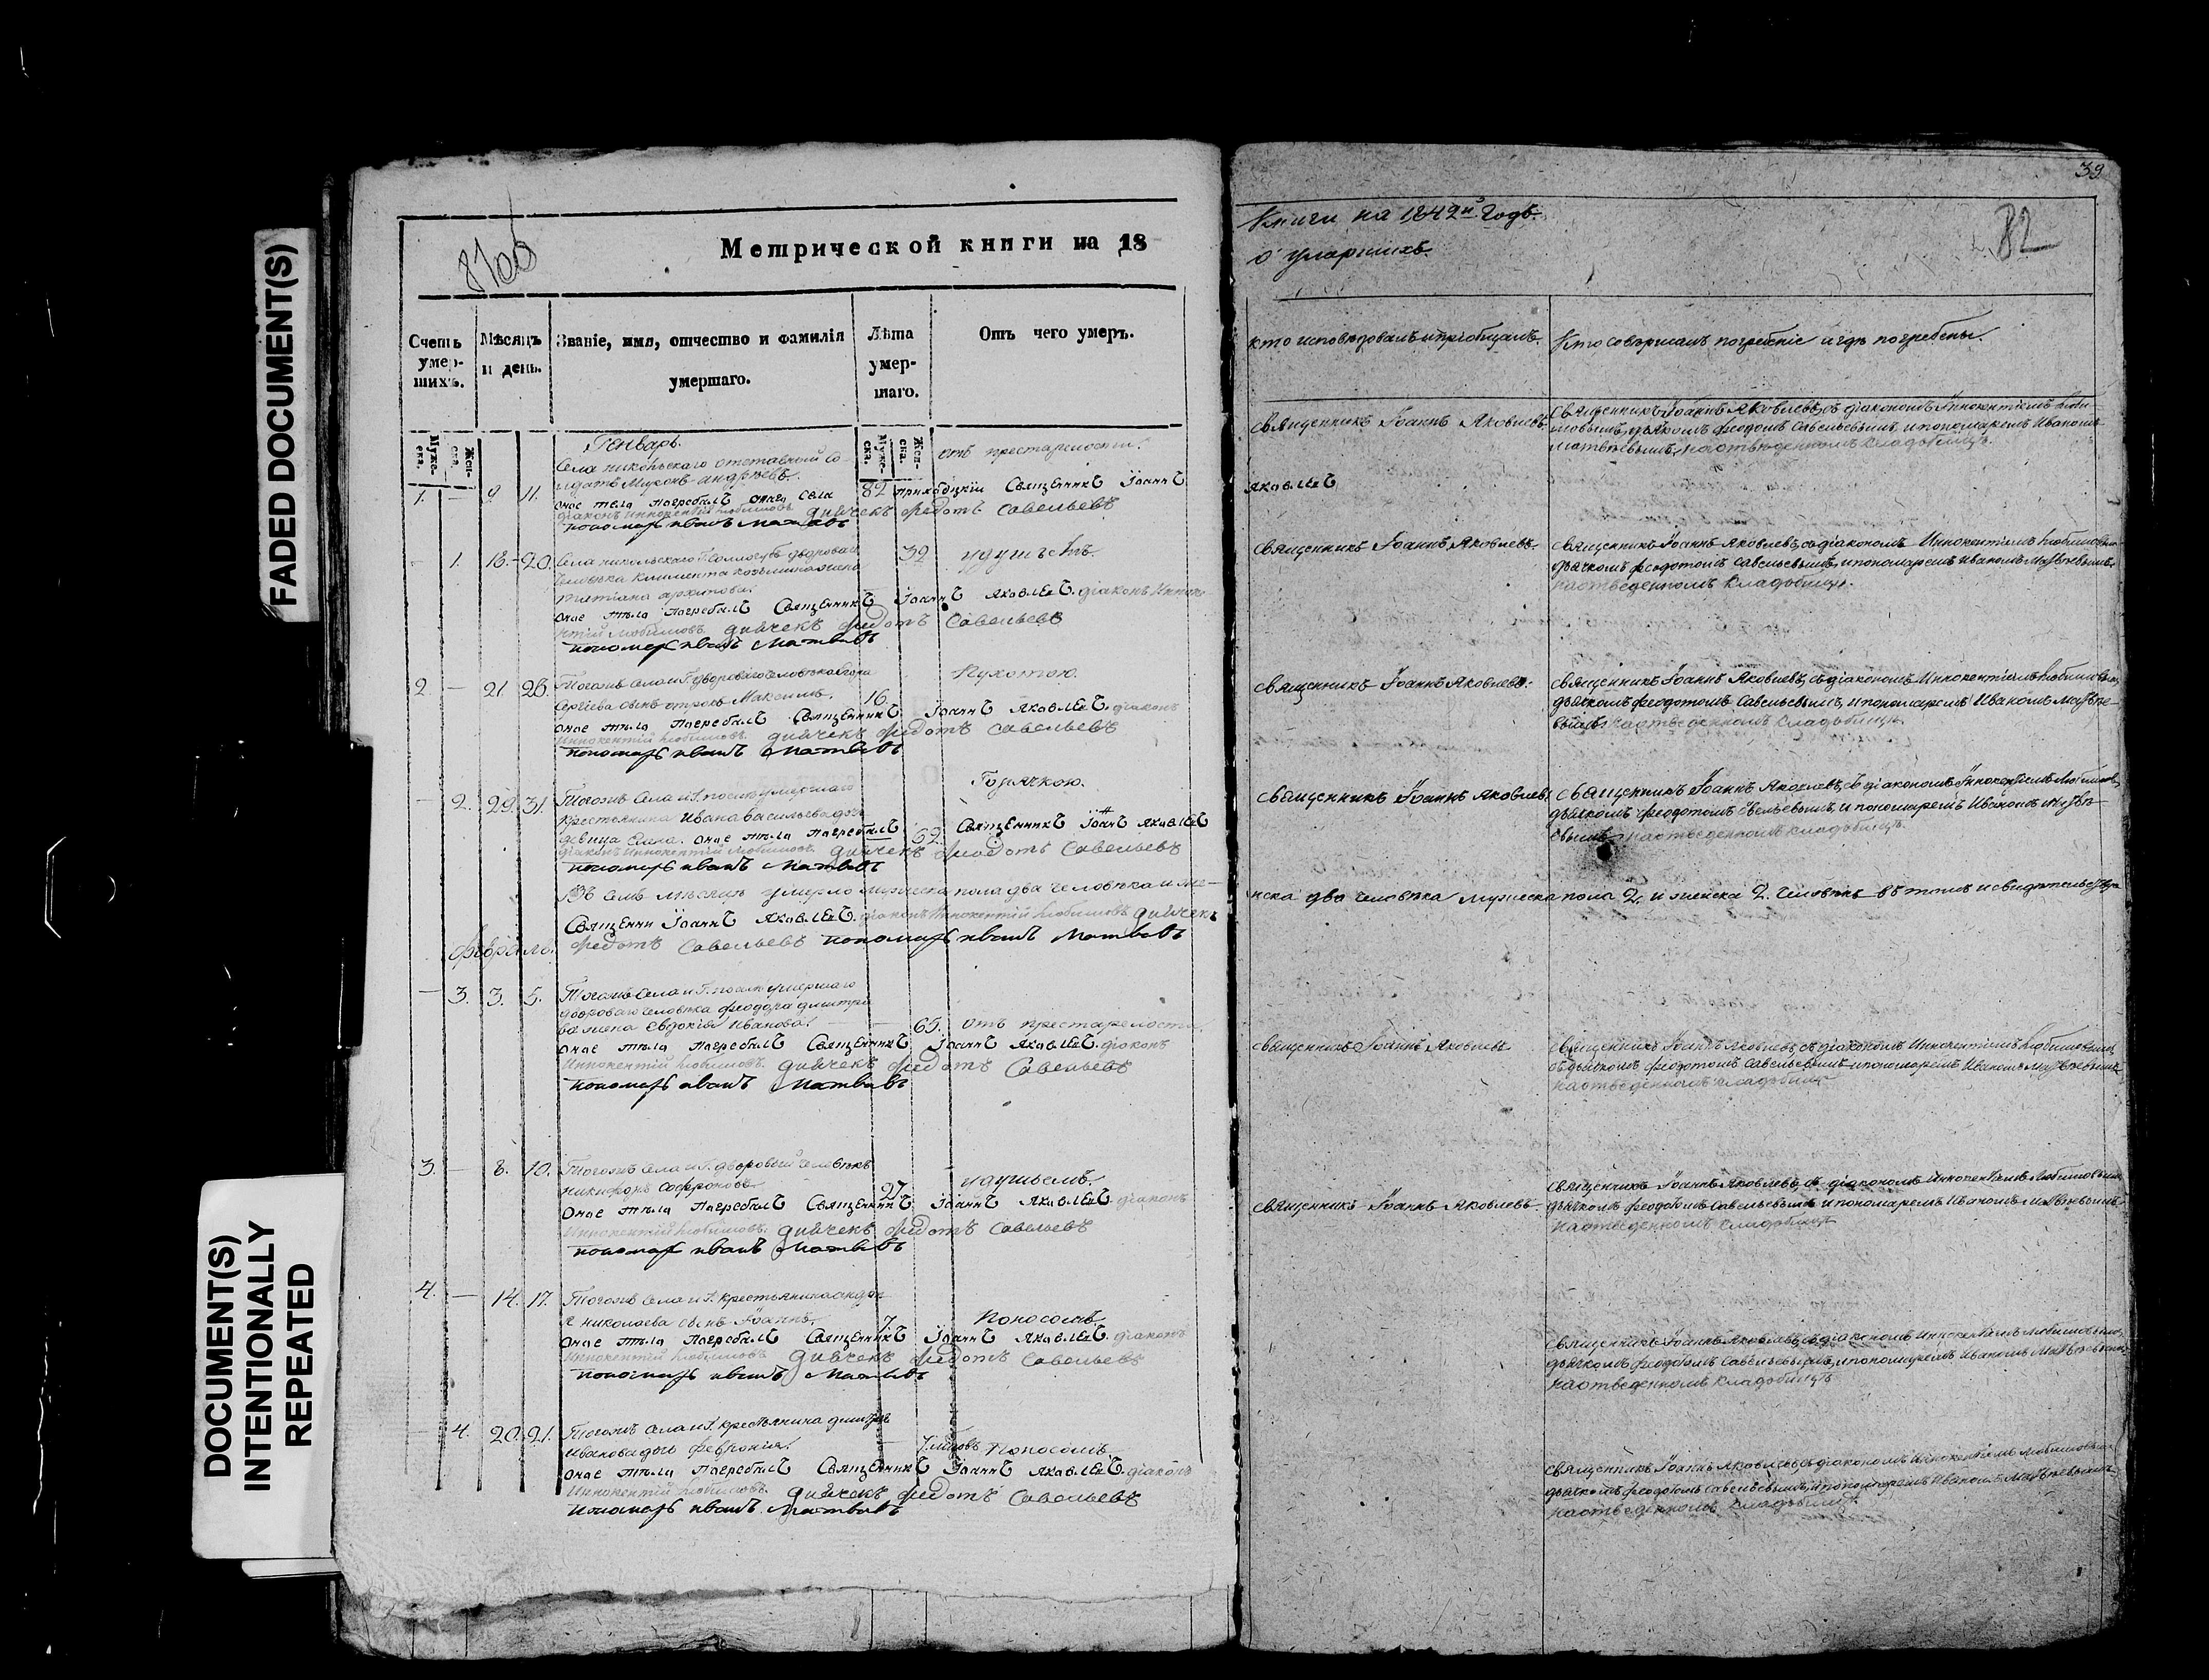 FADED DOCUMENT(S)
DOCUMENT(S)
INTENTIONALLY
REPEATED
Метрической книги на 18
Счетъ умер-шихъ.
Мѣсяцъ и день.
Званіе, имя, отчество и фамилія умершаго.
Лѣта умер-шаго.
Отъ чего умеръ.
Муже-ска.
Жен-ска.
Муже-ска.
Жен-ска.
Генварь.
1. — 9 11. Села никольскаго отставный со-
лдатъ андрѣевъ. 82 отъ престарелости.
оное тѣла погребалъ онаго села приходцкіи Священникъ Іоаннъ
діаконъ Иннокентій Любимовъ дьячекъ Федотъ Савельевъ
пономарь иванъ Матвѣвъ
— 1. 18.-20. Села никольскаго дворова
человѣка Климента козьмина жена 32 удушьемъ
татіана архипова.
оное тѣла погребалъ Священникъ Іоаннъ Яковлевъ. діаконъ Инноке
нтій Любимовъ дьячекъ Федотъ Савельевъ
пономарь иванъ Матвѣвъ
2 — 21 23. Тогожъ села и Г. двороваго человѣка Егора Чухоткою.
Сергіева сынъ отрокъ Максимъ. 16.
оное тѣла погребалъ Священникъ Іоаннъ Яковлевъ. діаконъ
Иннокентій Любимовъ. дьячекъ Федотъ Савельевъ
пономарь иванъ Матвѣвъ
— 2. 29. 31. Тогожъ села и Г. послѣ умершаго Горячкою.
крестьянина Ивана васильева дочь
девица оное тѣла погребалъ Священникъ Іоаннъ Яковлевъ
діаконъ Иннокентій Любимовъ. дьячекъ Федотъ Савельевъ
пономарь иванъ Матвѣвъ
Въ семъ мѣсяцѣ умерло мужеска пола два человѣка и же-
Священни Іоаннъ Яковлевъ. діаконъ Иннокентій Любимовъ дьячекъ
Федотъ Савельевъ пономарь иванъ Матвѣвъ
Февраль.
— 3. 3. 5. Тогожъ села и Г. послѣ умершаго
двороваго человѣка Феодора дмитрі
ва жена Евдокія Иванова. 65. отъ престарелости.
оное тѣла погребалъ Священникъ Іоаннъ Яковлевъ. діаконъ
Иннокентій Любимовъ. дьячекъ Федотъ Савельевъ
пономарь иванъ Матвѣвъ
3. — 8. 10. Тогожъ села и Г. дворовый человѣкъ
никифоръ Софроновъ 27 удушьемъ.
оное тѣла погребалъ Священникъ Іоаннъ Яковлевъ. діаконъ
Иннокентій Любимовъ. дьячекъ Федотъ Савельевъ
пономарь иванъ Матвѣвъ
4. — 14. 17. Тогожъ села и Г. крестьянина андре
я николаева сынъ Іоаннъ. 7. Поносомъ
оное тѣла погребалъ Священникъ Іоаннъ Яковлевъ. діаконъ
Иннокентій Любимовъ дьячекъ Федотъ Савельевъ
пономарь иванъ Матвѣвъ
— 4. 20. 21. Тогожъ села и Г. крестьянина дмитрі
Иванова дочь Февронія. Поносомъ
оное тѣла погребалъ Священникъ Іоаннъ Яковлевъ. діаконъ
Иннокентій Любимовъ. дьячекъ Федотъ Савельевъ
пономарь иванъ Матвѣвъ
39
82
Книги на 1842й Годъ.
о умаршихъ.
кто исповѣдовалъ и пріобщалъ.
Кто совершалъ погребеніе и гдѣ погребены.
священникъ Іоаннъ Яковлевъ.
священникъ Іоаннъ Яковлевъ, съ діакономъ Иннокентіемъ Люби-
мовымъ, дьячкомъ феодотомъ Савельевымъ, и пономаремъ Иваномъ
матвѣевымъ, на отведенномъ кладбищѣ.
Яковлевъ
священникъ Іоаннъ, Яковлевъ.
священникъ Іоаннъ Яковлевъ, съ діакономъ Иннокентіемъ Любимовым
дьячкомъ феодотомъ савельевымъ, и пономаремъ Иваномъ Матвѣевымъ,
на отведенномъ кладбищѣ.
священникъ Іоаннъ Яковлевъ.
священникъ Іоаннъ Яковлевъ, съ діакономъ Иннокентіемъ Любимовымъ,
дьячкомъ феодотомъ савельевымъ, и пономаремъ Иваномъ Матвѣе-
вымъ на отведенномъ кладбищѣ.
священникъ Іоаннъ Яковлевъ
священникъ Іоаннъ Яковлевъ, съ діакономъ Иннокентіемъ Любимов.
дьячкомъ феодотомъ савельевымъ, и пономаремъ Иваномъ Матвѣ-
евымъ на отведенномъ кладбищѣ.
нска два человѣка мужеска пола 2, и женска 2. человѣкъ въ томъ и свидѣтельствуе
священникъ Іоаннъ Яковлевъ
священникъ Іоаннъ Яковлевъ, съ діакономъ Иннокентіемъ Любимовымъ,
съ дьячкомъ феодотомъ савельевымъ и пономаремъ Иваномъ Матвѣевымъ
на отведенномъ кладбищѣ
священникъ Іоаннъ Яковлевъ.
священникъ Іоаннъ Яковлевъ, съ діакономъ Иннокентіемъ Любимовымъ,
дьячкомъ феодотомъ савельевымъ и пономаремъ Иваномъ Матвѣевымъ
на отведенномъ кладбищѣ
священникъ Іоаннъ Яковлевъ, съ діакономъ Иннокентіемъ Любимовымъ,
дьячкомъ феодотомъ савельевымъ, и пономаремъ Иваномъ Матвѣевымъ
на отведенномъ кладбищѣ
священникъ Іоаннъ Яковлевъ, съ діакономъ Иннокентіемъ Любимовым
дьячкомъ феодотомъ савельевымъ, и пономаремъ Иваномъ Матвѣевымъ
на отведенномъ кладбищѣ